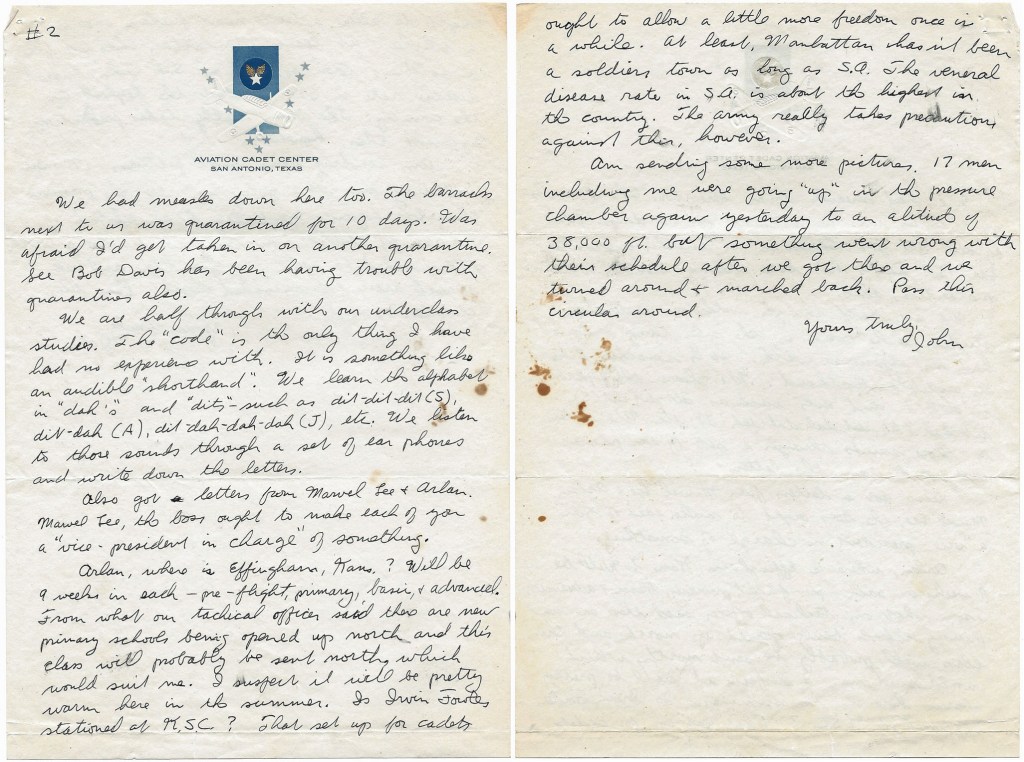 #2
AVIATION CADET CENTER
SAN ANTONIO, TEXAS
We had measles down here too. The barracks
next to us was quarantined for 10 days. Was
afraid I'd get taken in on another quarantine.
See Bob Davis has been having trouble with
quarantines also.
We are half through with our underclass
studies. The "code" is the only thing I have
had no experience with. It is something like
an audible "shorthand". We learn the alphabet
in "dah's" and "dits" - such as dit-dit-dit (S),
dit-dah (A), dit-dah-dah-dah (J), etc. We listen
to those sounds through a set of ear phones
and write down the letters.
Also got letters from Marvel Lee & Arlan.
Marvel Lee, the boss ought to make each of you
a "vice-president in charge" of something.
Arlan, where is Effingham, Kans.? Will be
9 weeks in each - pre-flight, primary, basic, & advanced.
From what our tachical officer said there are new
primary schools being opened up north and this
class will probably be sent north, which
would suit me. I suspect it will be pretty
warm here in the summer. Is Irvin Fowles
stationed at K.S.C? That set up for cadets
ought to allow a little more freedom once in
a while. At least, Manhattan hasn't been
a soldiers town as long as S.A. The veneral
disease rate in S.A. is about the highest in
the country. The army really takes precautions
against this, however.
Am sending some more pictures. 17 men
including me were going "up" in the pressure
chamber again yesterday to an altitude of
38,000 ft. but something went wrong with
their schedule after we got there and we
turned around & marched back. Pass this
circular around.
Yours truly,
John